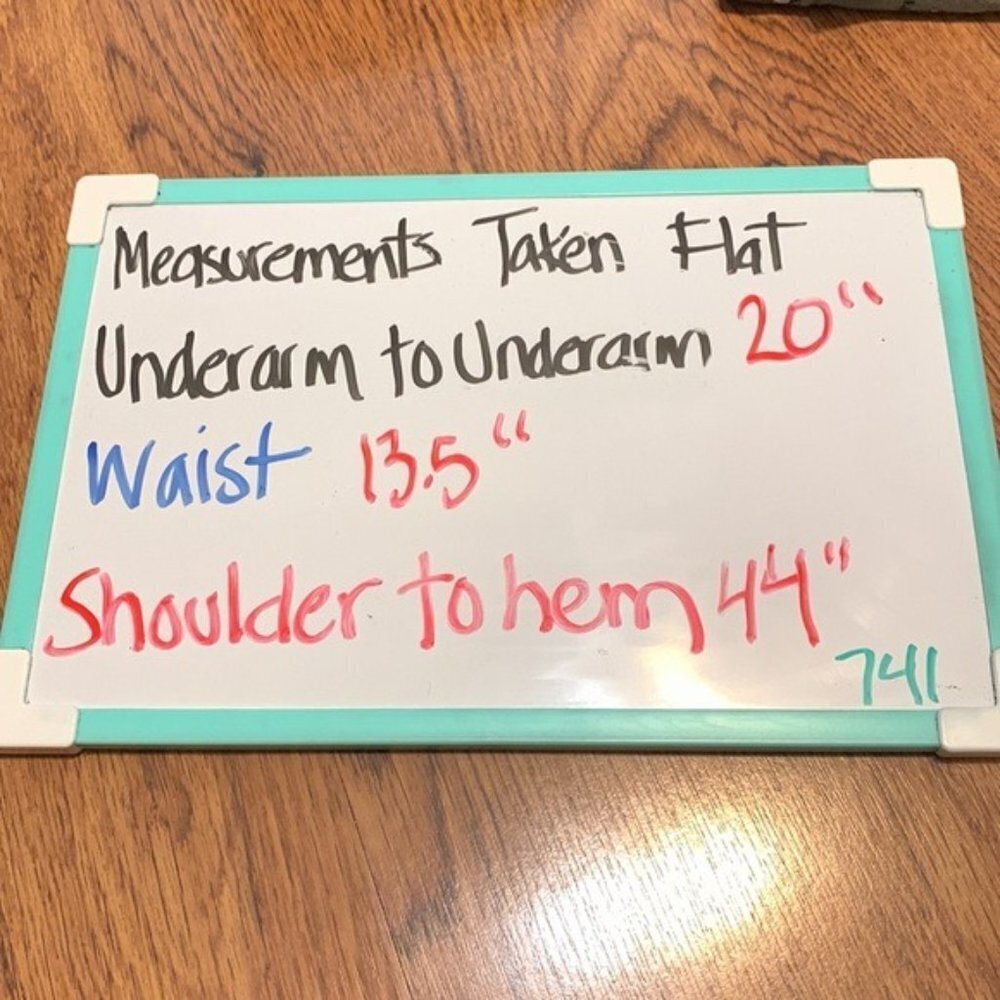 Measurements Taken Flat
Underarm to Underarm 20"
Waist 13.5"
Shoulder to hem 44"
741